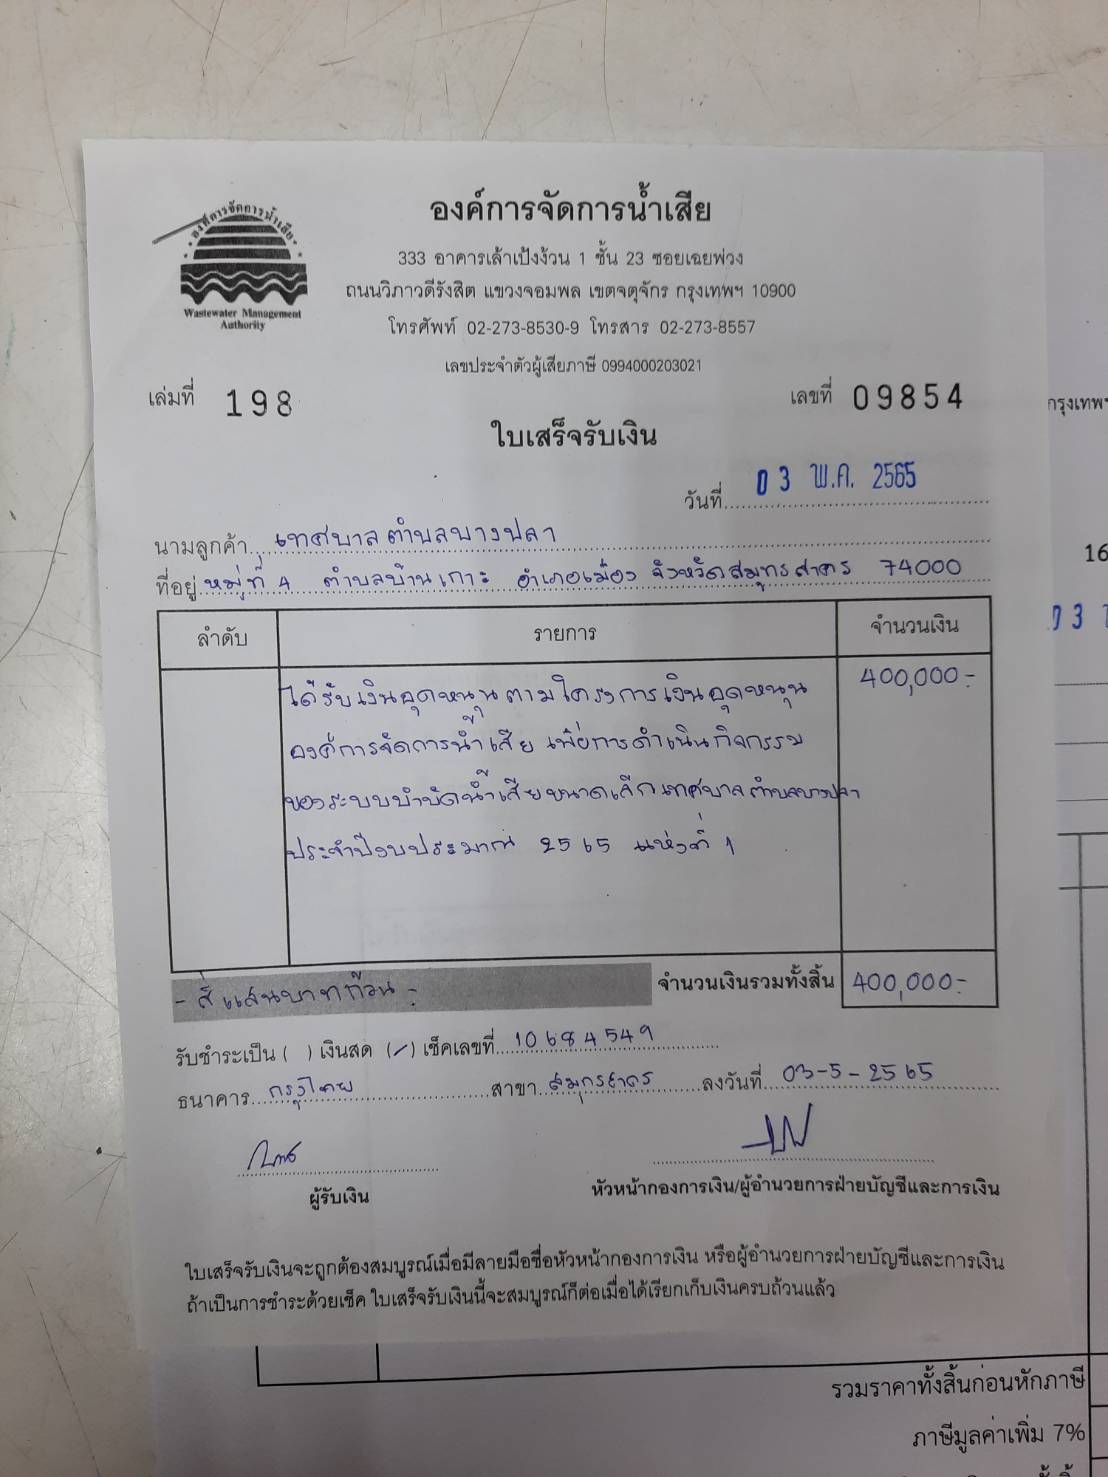 องค์การจัดการน้ำเสีย
องค์การจัดการน้ำเสีย
Wastewater Management
Authority
333 อาคารเล้าเป้งง้วน 1 ชั้น 23 ซอยเฉยพ่วง
ถนนวิภาวดีรังสิต แขวงจอมพล เขตจตุจักร กรุงเทพฯ 10900
โทรศัพท์ 02-273-8530-9 โทรสาร 02-273-8557
เลขประจำตัวผู้เสียภาษี 0994000203021
เล่มที่ 198 เลขที่ 09854
ใบเสร็จรับเงิน
วันที่ 03 พ.ค. 2565
นามลูกค้า เทศบาลตำบลบางปลา
ที่อยู่ หมู่ที่ 4 ตำบลบ้านเกาะ อำเภอเมือง จังหวัดสมุทรสาคร 74000
ลำดับ รายการ จำนวนเงิน
ได้รับเงินอุดหนุนตามโครงการเงินอุดหนุน 400,000.-
องค์การจัดการน้ำเสีย เพื่อการดำเนินกิจกรรม
ของระบบบำบัดน้ำเสียขนาดเล็กเทศบาลตำบลบางปลา
ประจำปีงบประมาณ 2565 แห่งที่ 1
- สี่แสนบาทถ้วน - จำนวนเงินรวมทั้งสิ้น 400,000.-
รับชำระเป็น ( ) เงินสด (/) เช็คเลขที่ 10684549
ธนาคาร กรุงไทย สาขา สมุทรสาคร ลงวันที่ 03-5-2565
ผู้รับเงิน
หัวหน้ากองการเงิน/ผู้อำนวยการฝ่ายบัญชีและการเงิน
ใบเสร็จรับเงินจะถูกต้องสมบูรณ์เมื่อมีลายมือชื่อหัวหน้ากองการเงิน หรือผู้อำนวยการฝ่ายบัญชีและการเงิน
ถ้าเป็นการชำระด้วยเช็ค ใบเสร็จรับเงินนี้จะสมบูรณ์ก็ต่อเมื่อได้เรียกเก็บเงินครบถ้วนแล้ว
กรุงเทพฯ
16
03
รวมราคาทั้งสิ้นก่อนหักภาษี
ภาษีมูลค่าเพิ่ม 7%